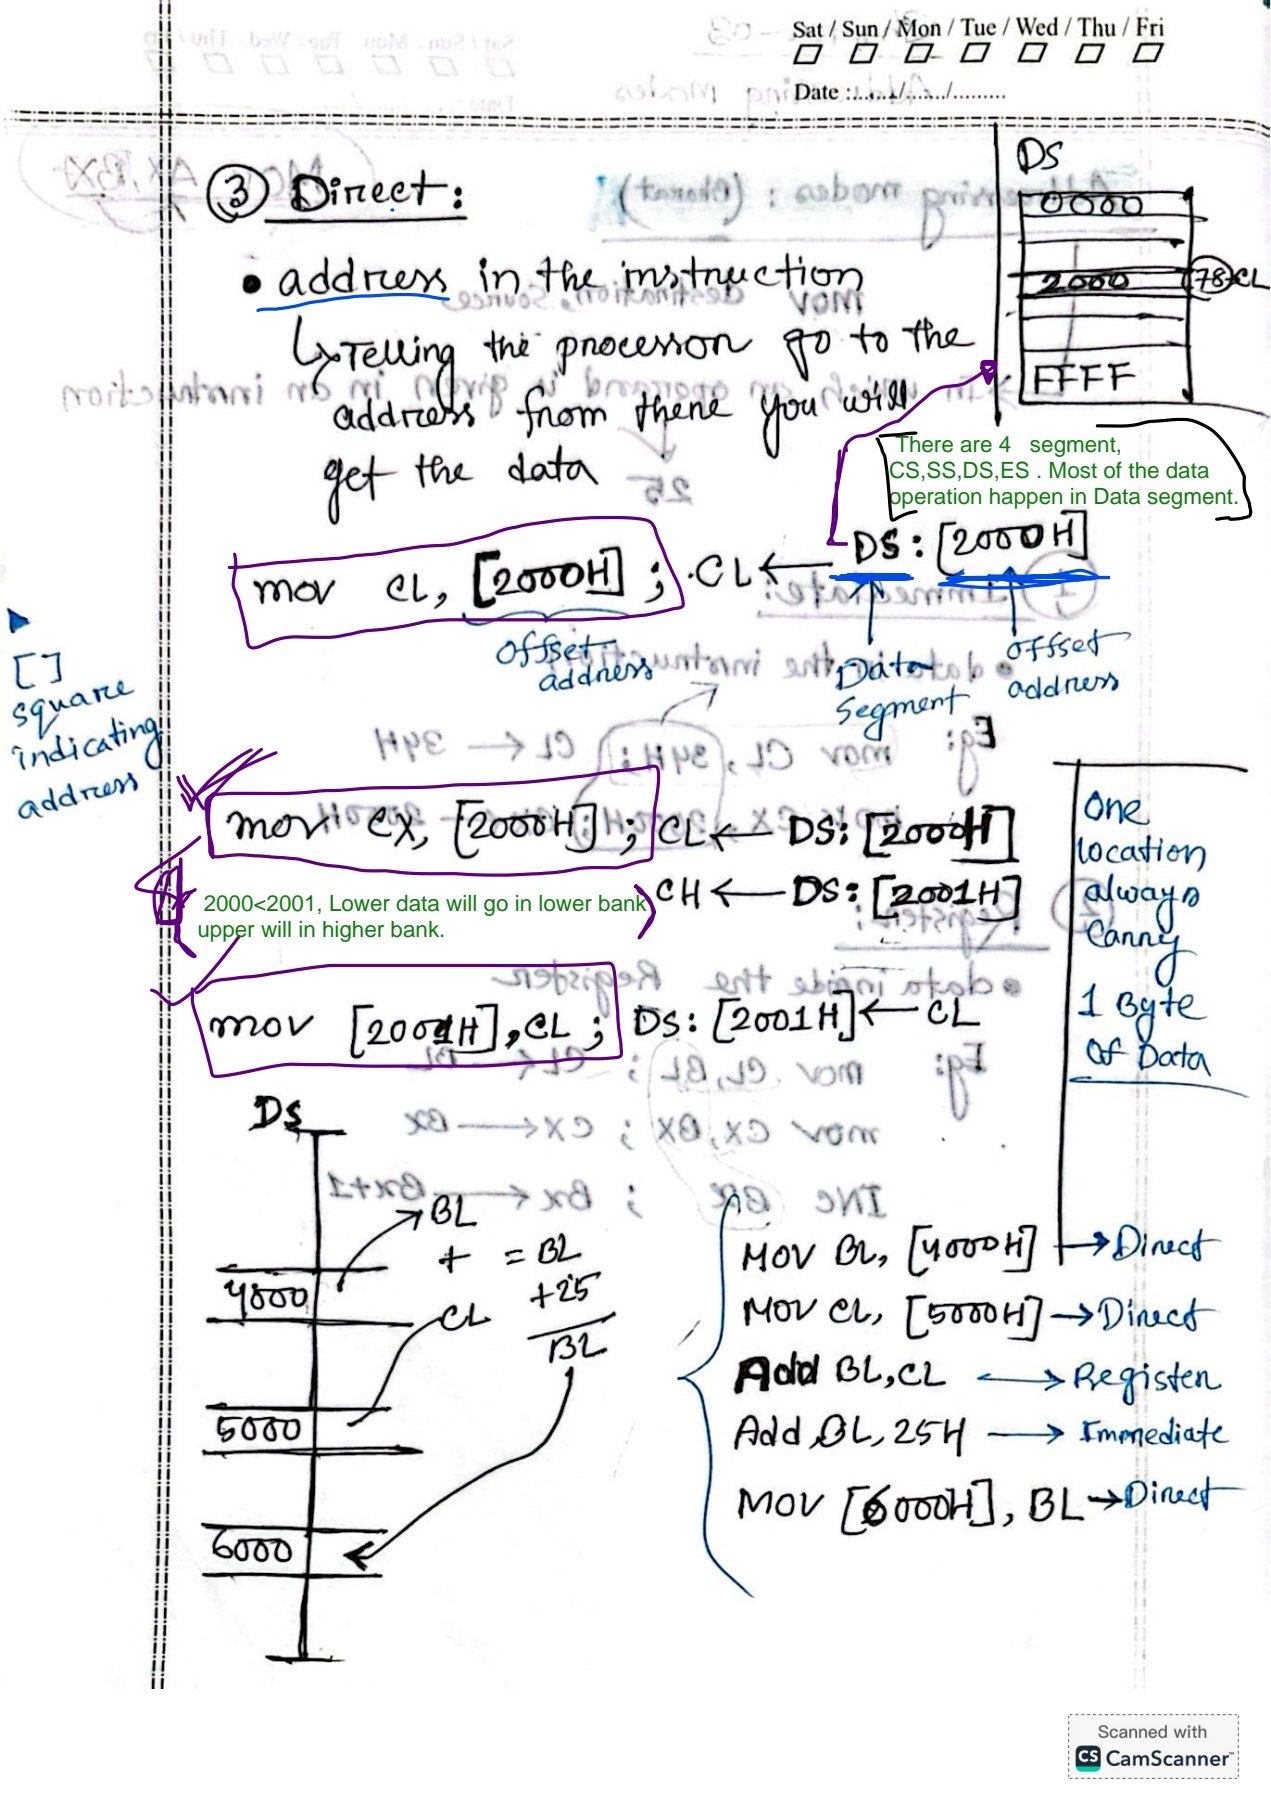 Sat / Sun / Mon / Tue / Wed / Thu / Fri
Date :
③ Direct:
• address in the instruction
↳ Telling the processor go to the
address from there you will
get the data
DS
0000
2000 78 CL
FFFF
There are 4 segment,
CS,SS,DS,ES . Most of the data
operation happen in Data segment.
mov CL, [2000H] ; CL ← DS : [2000H]
offset
address
Data
segment
offset
address
[ ]
square
indicating
address
mov CX, [2000H] ; CL ← DS: [2000H]
CH ← DS: [2001H]
2000<2001, Lower data will go in lower bank
upper will in higher bank.
mov [2001H], CL ; DS: [2001H] ← CL
One
location
always
carry
1 Byte
of Data
DS
BL
+ = BL
4000 +25
CL BL
5000
6000
MOV BL, [4000H] → Direct
MOV CL, [5000H] → Direct
Add BL, CL → Register
Add BL, 25H → Immediate
MOV [6000H], BL → Direct
Scanned with
CS CamScanner